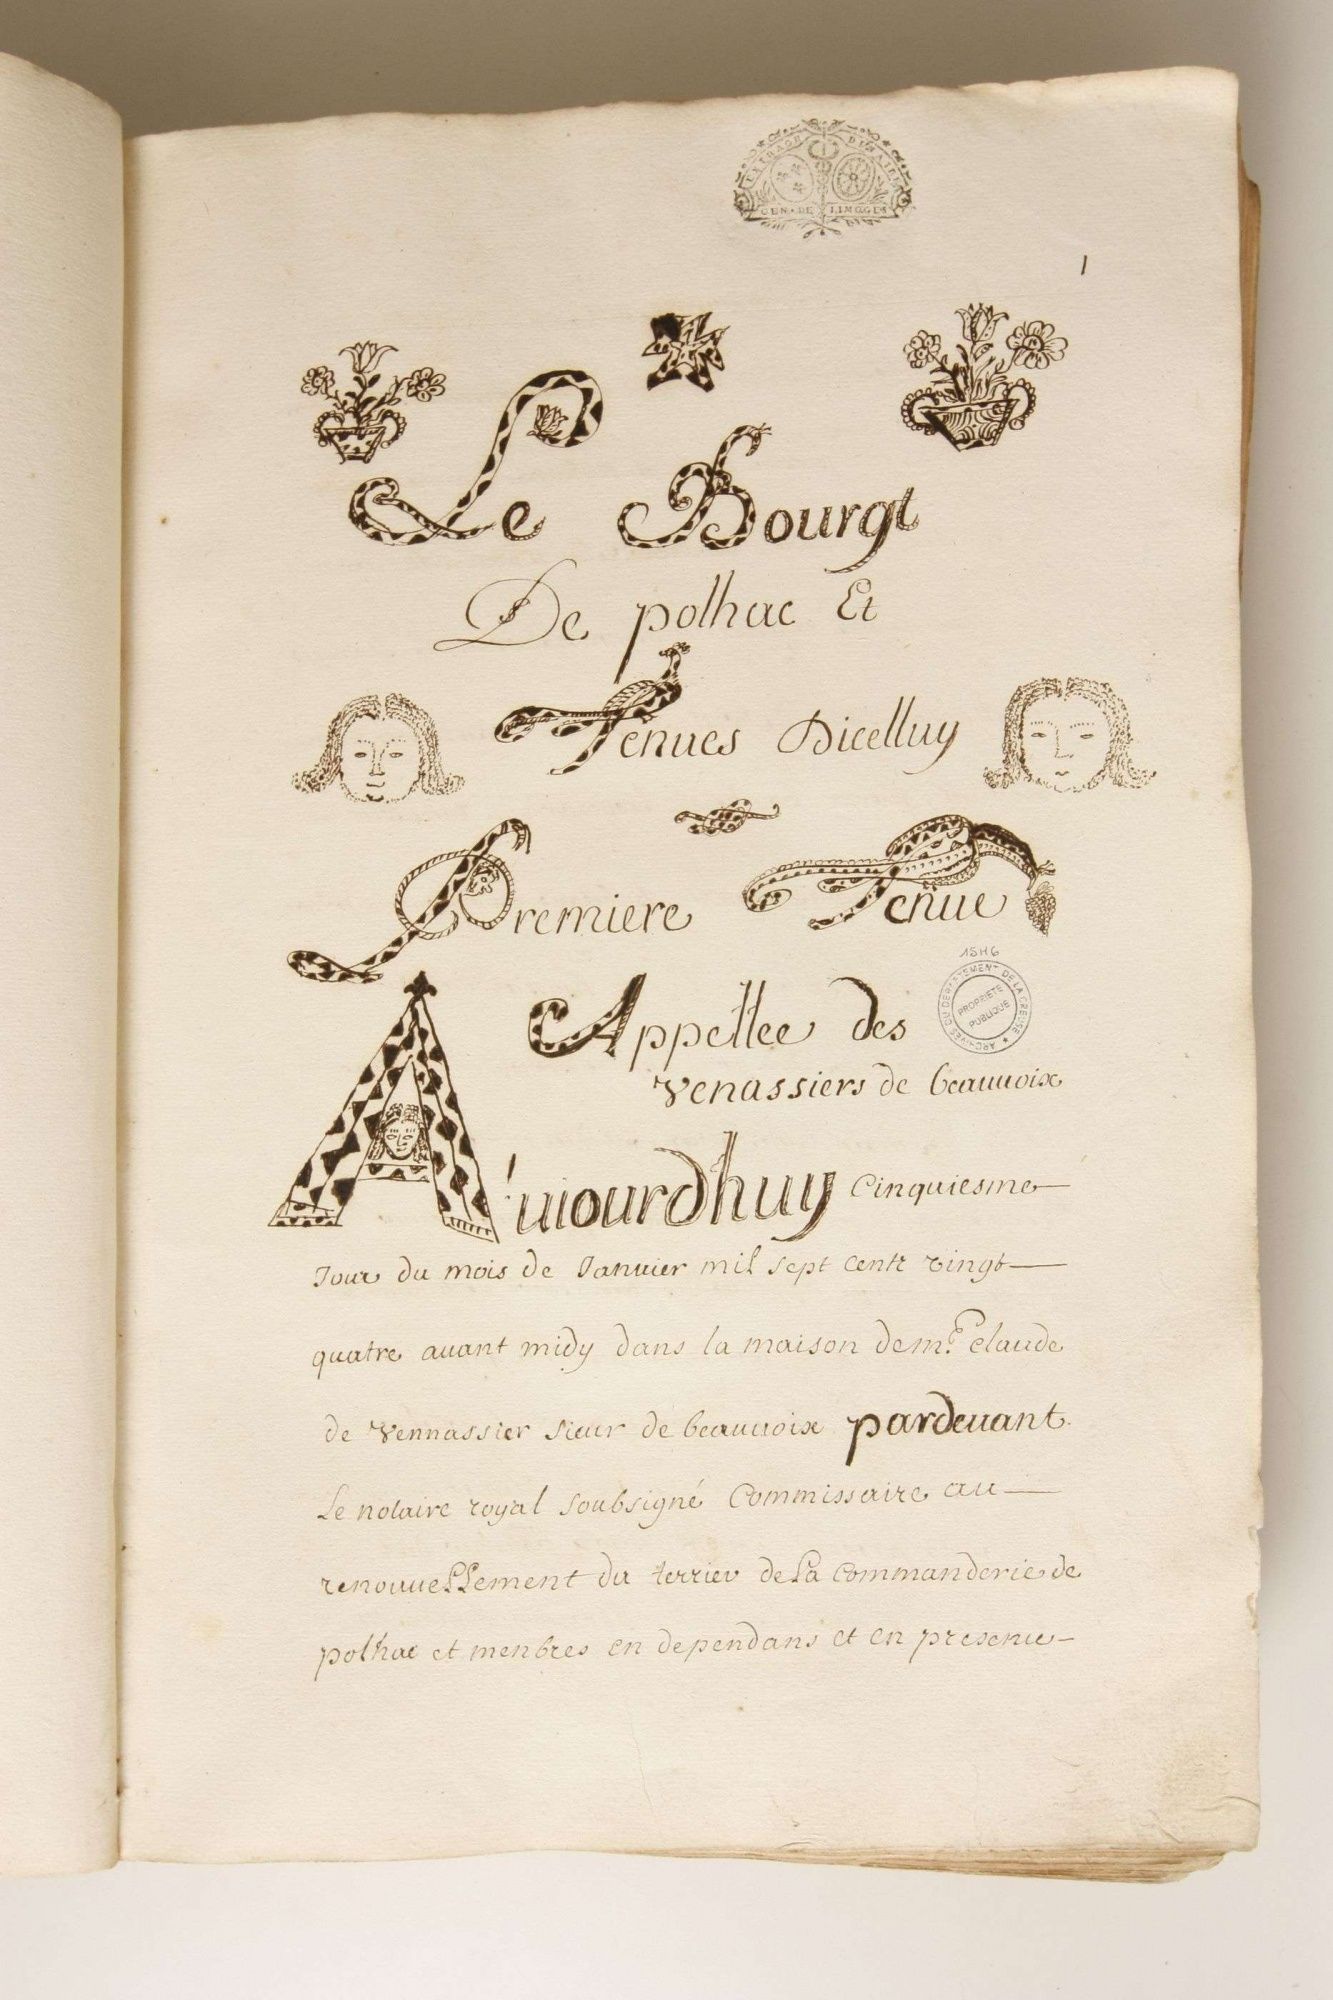 GEN. DE LIMOGES
1
Le Bourgt
De polhac Et
Tenues Dicelluy
Premiere Tenue
15H6
ARCHIVES DU DEPARTEMENT DE LA CREUSE
PROPRIÉTÉ PUBLIQUE
Appellee des
venassiers de beauuoix
Aujourdhuy Cinquiesme
Jour du mois de Januier mil sept centz vingt
quatre auant midy dans la maison de mr. claude
de vennassier sieur de beauuoix pardeuant
Le notaire royal soubsigné Commissaire au
renouuellement du terrier de La commanderie de
polhac et menbres en dependans et en presence